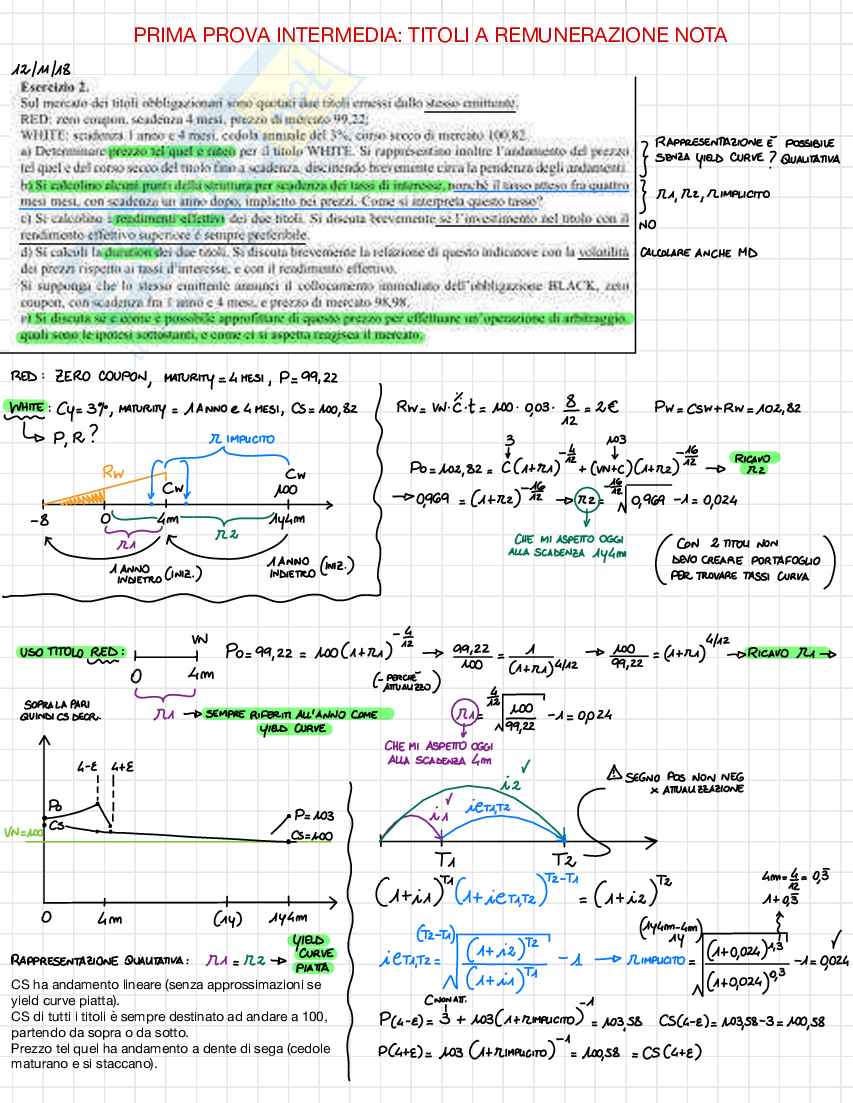 PRIMA PROVA INTERMEDIA: TITOLI A REMUNERAZIONE NOTA
12/11/18
Esercizio 2.
Sul mercato dei titoli obbligazionari sono quotati due titoli emessi dallo stesso emittente.
RED: zero coupon, scadenza 4 mesi, prezzo di mercato 99,22;
WHITE: scadenza 1 anno e 4 mesi, cedola annuale del 3%, corso secco di mercato 100,82.
a) Determinare prezzo tel quel e rateo per il titolo WHITE. Si rappresentino inoltre l'andamento del prezzo
tel quel e del corso secco del titolo fino a scadenza, discutendo brevemente circa la pendenza degli andamenti.
b) Si calcolino alcuni punti della struttura per scadenza dei tassi di interesse, nonchè il tasso atteso fra quattro
mesi mesi, con scadenza un anno dopo, implicito nei prezzi. Come si interpreta questo tasso?
c) Si calcolino i rendimenti effettivi dei due titoli. Si discuta brevemente se l'investimento nel titolo con il
rendimento effettivo superiore è sempre preferibile.
d) Si calcoli la duration dei due titoli. Si discuta brevemente la relazione di questo indicatore con la volatilità
dei prezzi rispetto ai tassi d'interesse, e con il rendimento effettivo.
Si supponga che lo stesso emittente annunci il collocamento immediato dell'obbligazione BLACK, zero
coupon, con scadenza fra 1 anno e 4 mesi, e prezzo di mercato 98,98.
e) Si discuta se e come è possibile approfittare di questo prezzo per effettuare un'operazione di arbitraggio,
quali sono le ipotesi sottostanti, e come ci si aspetta reagisca il mercato.
RAPPRESENTAZIONE È POSSIBILE
SENZA YIELD CURVE? QUALITATIVA
r1, r2, r IMPLICITO
NO
CALCOLARE ANCHE MD
RED: ZERO COUPON, MATURITY = 4 MESI, P = 99,22
WHITE: Cy = 3%, MATURITY = 1 ANNO e 4 MESI, CS = 100,82
P, R?
r IMPLICITO
Rw
Cw
Cw
100
-8 0 4m 1y4m
r1 r2
1 ANNO INDIETRO (INIZ.)
1 ANNO INDIETRO (INIZ.)
Rw = VN · C% · t = 100 · 0,03 · 8/12 = 2€ Pw = CSw + Rw = 102,82
3 103
P0 = 102,82 = C(1+r1)^-4/12 + (VN+C)(1+r2)^-16/12 → RICAVO r2
→ 0,969 = (1+r2)^-16/12 → r2 = -16/12√0,969 - 1 = 0,024
CHE MI ASPETTO OGGI
ALLA SCADENZA 1y4m
(CON 2 TITOLI NON
DEVO CREARE PORTAFOGLIO
PER TROVARE TASSI CURVA)
USO TITOLO RED:
VN
0 4m
P0 = 99,22 = 100(1+r1)^-4/12 → 99,22/100 = 1/(1+r1)^4/12 → 100/99,22 = (1+r1)^4/12 → RICAVO r1 →
(- PERCHÈ ATTUALIZZO)
r1 → SEMPRE RIFERITI ALL'ANNO COME
YIELD CURVE
r1 = 4/12√100/99,22 - 1 = 0,024
CHE MI ASPETTO OGGI
ALLA SCADENZA 4m
SOPRA LA PARI
QUINDI CS DECR.
4-ε 4+ε
P0
CS
VN=100
P=103
CS=100
0 4m (1y) 1y4m
RAPPRESENTAZIONE QUALITATIVA: r1 = r2 → YIELD CURVE PIATTA
CS ha andamento lineare (senza approssimazioni se
yield curve piatta).
CS di tutti i titoli è sempre destinato ad andare a 100,
partendo da sopra o da sotto.
Prezzo tel quel ha andamento a dente di sega (cedole
maturano e si staccano).
i2 ✓
i1 ✓ ieT1,T2
T1 T2
⚠ SEGNO POS NON NEG
x ATTUALIZZAZIONE
(1+i1)^T1 (1+ieT1,T2)^T2-T1 = (1+i2)^T2
4m = 4/12 = 0,3
1+0,3
ieT1,T2 = (T2-T1)√(1+i2)^T2/(1+i1)^T1 - 1 → r IMPLICITO = (1y4m-4m) 1y√(1+0,024)^1,3/(1+0,024)^0,3 - 1 = 0,024 ✓
C NON ATT.
P(4-ε) = 3 + 103(1+r IMPLICITO)^-1 = 103,58 CS(4-ε) = 103,58-3 = 100,58
P(4+ε) = 103(1+r IMPLICITO)^-1 = 100,58 = CS(4+ε)